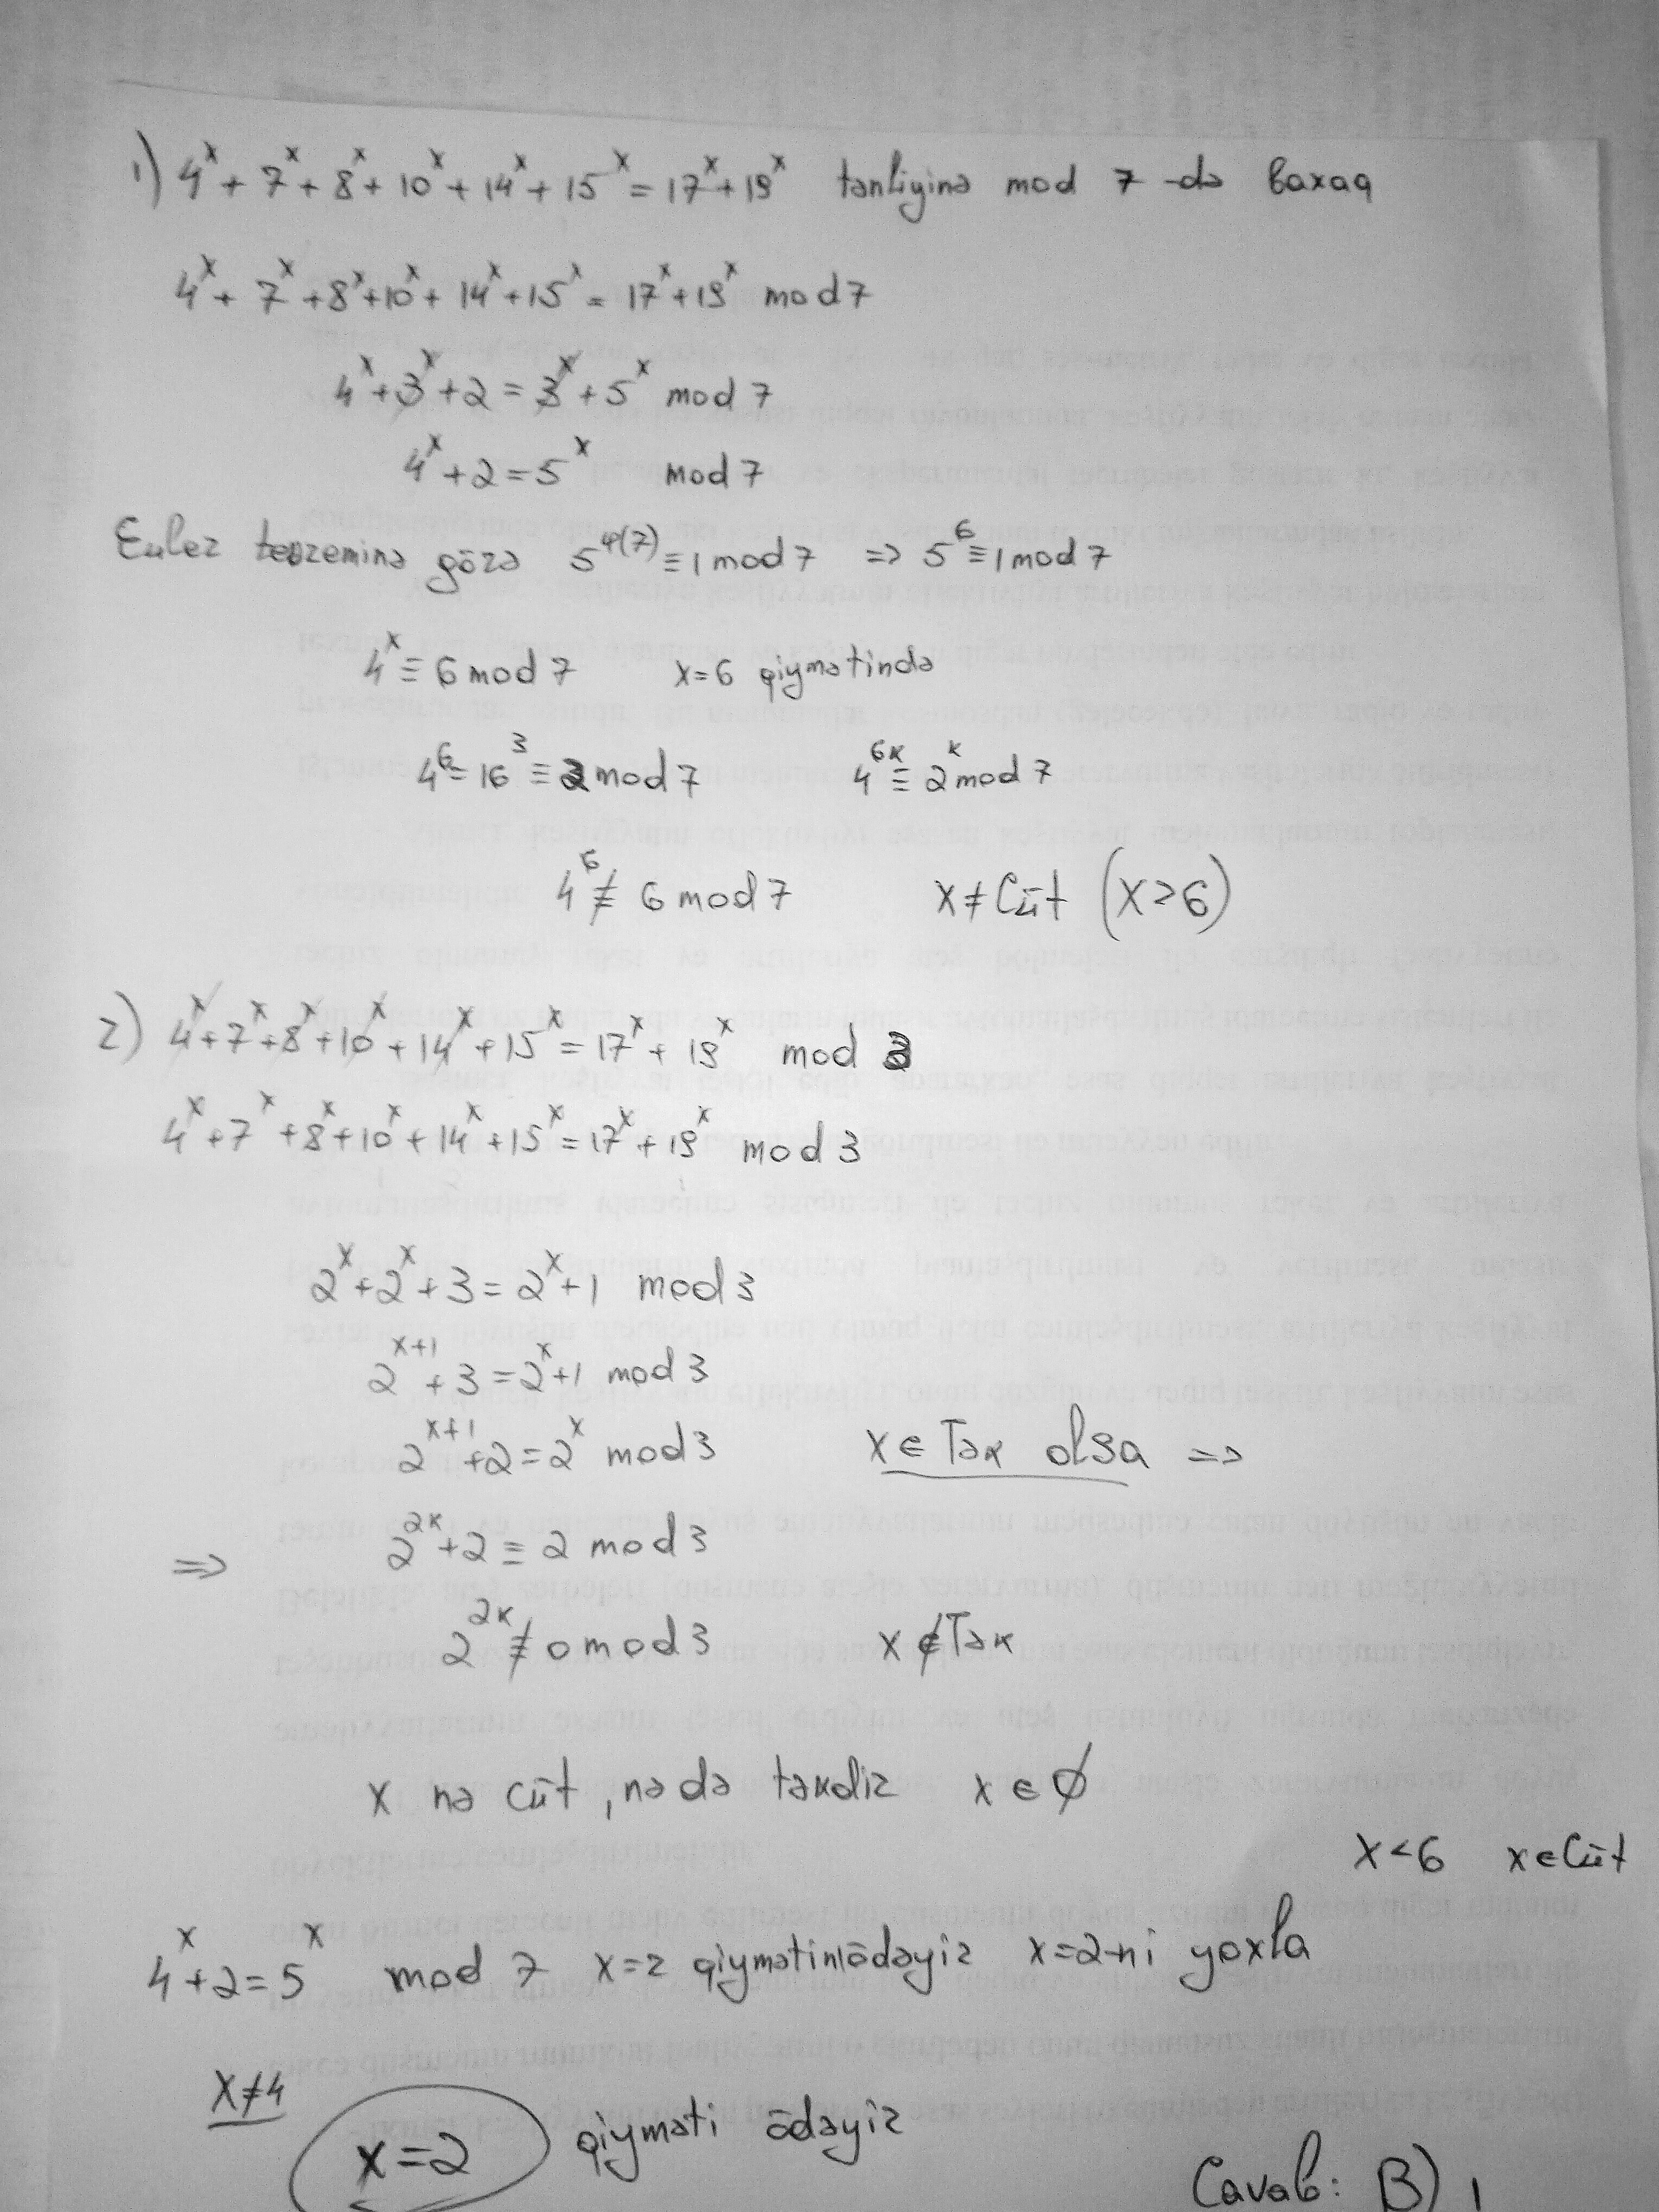 1) 4^x + 7^x + 8^x + 10^x + 14^x + 15^x = 17^x + 19^x tənliyinə mod 7 -də baxaq
4^x + 7^x + 8^x + 10^x + 14^x + 15^x = 17^x + 19^x mod 7
4^x + 3^x + 2 = 3^x + 5^x mod 7
4^x + 2 = 5^x mod 7
Euler teoreminə görə 5^φ(7) ≡ 1 mod 7 => 5^6 ≡ 1 mod 7
4^x ≡ 6 mod 7 x=6 qiymətində
4^6 = 16^3 ≡ 2 mod 7 4^6k ≡ 2^k mod 7
4^6 ≢ 6 mod 7 x ≠ Cüt (x>6)
2) 4^x + 7^x + 8^x + 10^x + 14^x + 15^x = 17^x + 19^x mod 3
4^x + 7^x + 8^x + 10^x + 14^x + 15^x = 17^x + 19^x mod 3
2^x + 2^x + 3 = 2^x + 1 mod 3
2^x+1 + 3 = 2^x + 1 mod 3
2^x+1 + 2 = 2^x mod 3 x ∈ Tək olsa =>
=> 2^2k + 2 ≡ 2 mod 3
2^2k ≢ 0 mod 3 x ∉ Tək
x nə cüt, nə də təkdir x ∈ ∅
x < 6 x ∈ Cüt
4^x + 2 = 5^x mod 7 x=2 qiymətini ödəyir x=2-ni yoxla
x ≠ 4
x = 2 qiyməti ödəyir
Cavab: B) 1